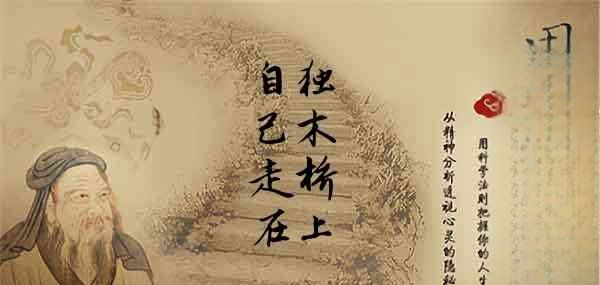 自己走在
独木桥上
从精神分析透视心灵的隐秘
用科学法则把握你的人生